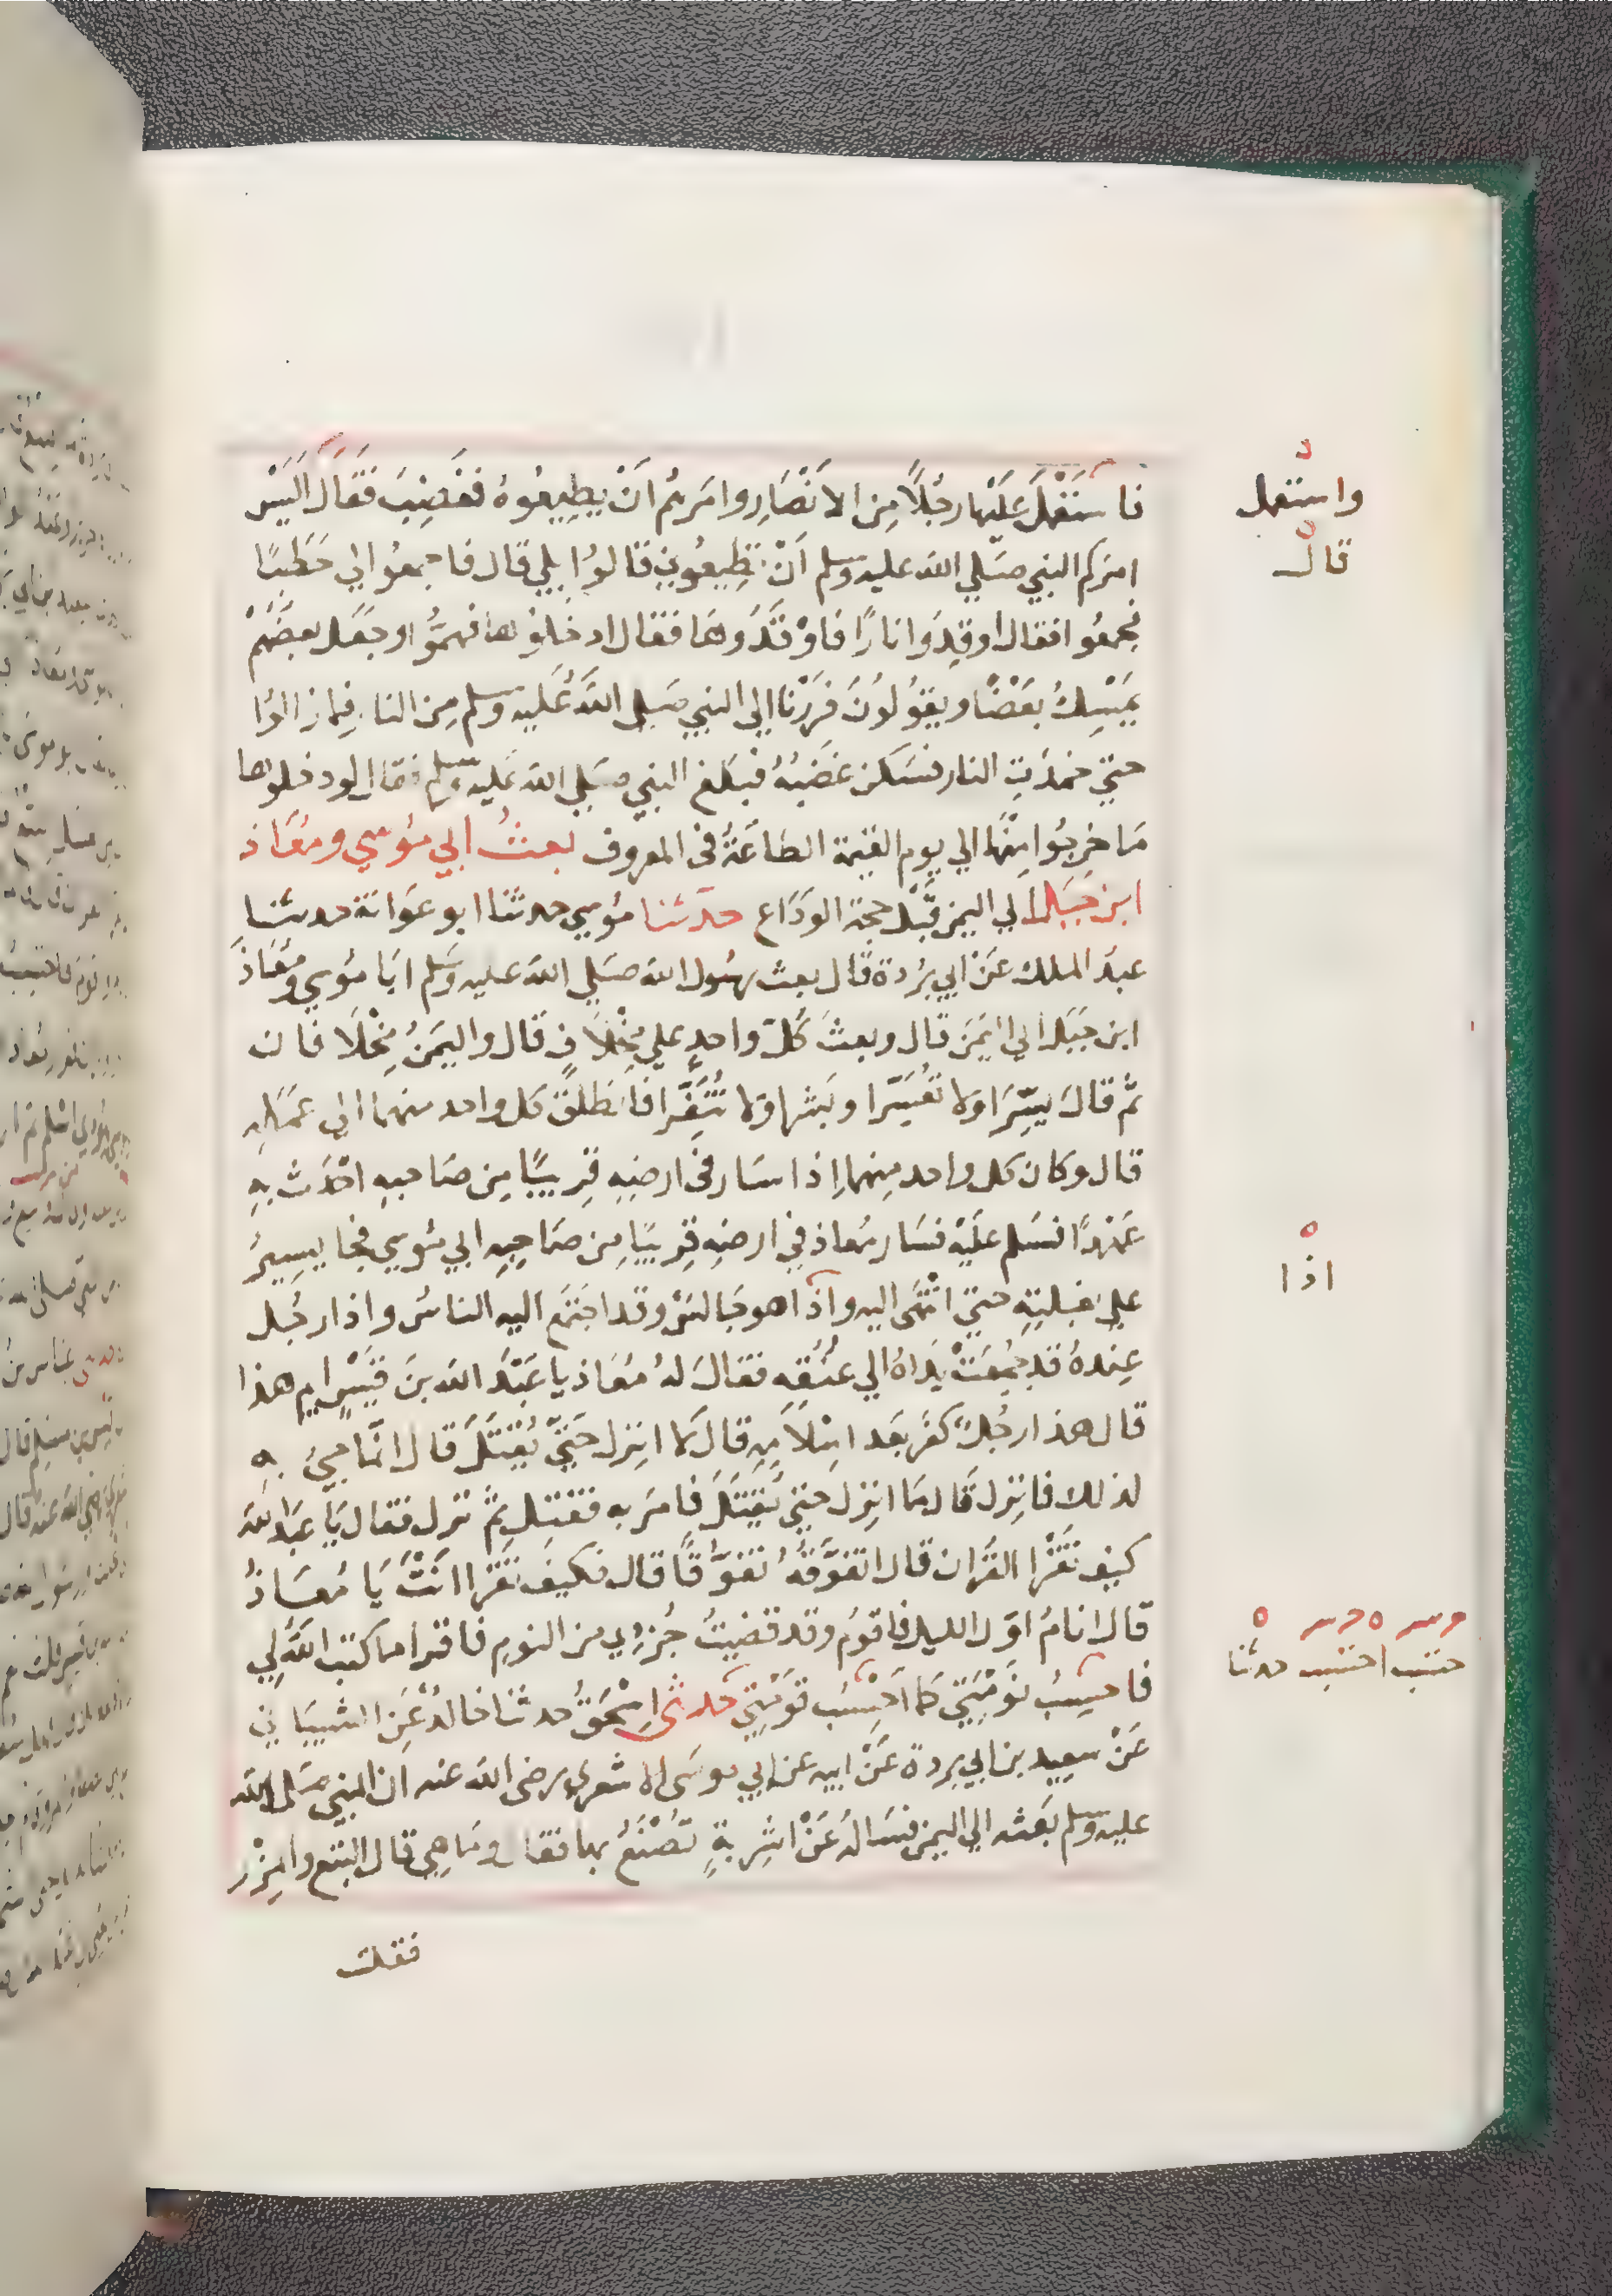 فاستَعْمَلَ عَلَيْهَا رجُلًا مِن الانْصَارِ وامَرهُم انْ يطِيعُوهُ فغَضِبَ فَقَالَ الَيْسَ
امركم النبي صَلي الله عليه وسلم انْ تطِيعُوني قالوُا بلي قال فاجمعُوا لي حَطبًا
فجمعُوا فقال اوقِدُوا نارًا فاوْقَدُوهَا فقال ادخلوُها فهمُّوا وجَعَل بعضهُمْ
يمْسِكُ بعْضًا ويقوُلوُنَ فررْنا الي النبي صَلي اللهُ عَليه وسلم مِن النار فما زالوُا
حتي خمدَتِ النار فسَكن غضَبُهُ فبلغ النبي صَلي الله عَليه وسلم فقال لو دخلوها
مَا خرجُوا مِنْهَا الي يوم القيمة الطاعَةُ في المعروف بعثُ ابي مُوسي ومُعَاذ
ابن جَبَل الي اليمن قَبْل حجة الوَدَاع حدثنا مُوسي حدثنا ابو عوَانة حدثنا
عبدُ الملك عَنْ ابي برُدة قال بعث رسُول الله صَلي الله عليه وسَلم ابَا مُوسي ومُعَاذَ
ابن جَبَل الي اليَمَن قال وبعثَ كُلّ واحدٍ علي مِخْلَافٍ قال واليَمَنُ مِخْلَافان
ثم قالَ يسِّرَا ولا تعُسّرَا وبَشرا ولا تُنَفِّرا فانطَلقَ كل واحد منهما الي عَمَلِهِ
قال وكان كل واحد مِنهما اِذا سَارَ في ارضِهِ قرِيبًا مِن صَاحبهِ احْدَث بِهِ
عَهْدًا فسَلم عليْه فسَار مُعاذ في ارضهِ قرِيبًا مِن صَاحِبِهِ ابي مُوسي فجا يسِيرُ
علي بغلتِهِ حتي انْتَهَى اليه واذا هو جَالسٌ وقد اجتمَع اليه الناسُ واذا رجُل
عِندهُ قد جُمِعَتْ يدَاهُ الي عنُقه فقالَ لهُ مُعَاذ يا عَبْدَ الله بنَ قَيْسٍ ايم هذا
قال هذا رجُلٌ كفرَ بعَد اسْلَامِهِ قال لا انزل حَتيّ يُقْتَلَ قال انّما جيَ بِهِ
لذلك فانزِل قَال مَا انزِل حتيّ يُقْتَلَ فامَر به فقتل ثمّ نزل فقال يَا عبْدَ الله
كيف تقْرَا القرْان قال اتفوّقهُ تفَوُّقًا قال فكيف تقرَا انَتْ يَا مُعَاذُ
قال انامُ اوّل الليل فاقوُم وقد قضيتُ جُزءِي من النومِ فاقرا ما كتب اللهُ لِي
فاحسِبُ نوْمَتي كما احْتِسبُ قوْمَتي حدثني اِسْحَقُ حدثنا خالدٌ عَنِ الشيبَاني
عَنْ سعِيد بن ابي بردة عَنْ ابيه عن ابي موسَى الاشعري رضى الله عنه ان النبي صَلى الله
عليه وسلم بعَثه الي اليمن فسَالهُ عَنْ اشْرِبةٍ تصْنَعُ بها فقال ومَا هِي قال البتْع والمِزْر
فقلت
واستعمل
قال
اذا
حتسب احتسب حدثنا